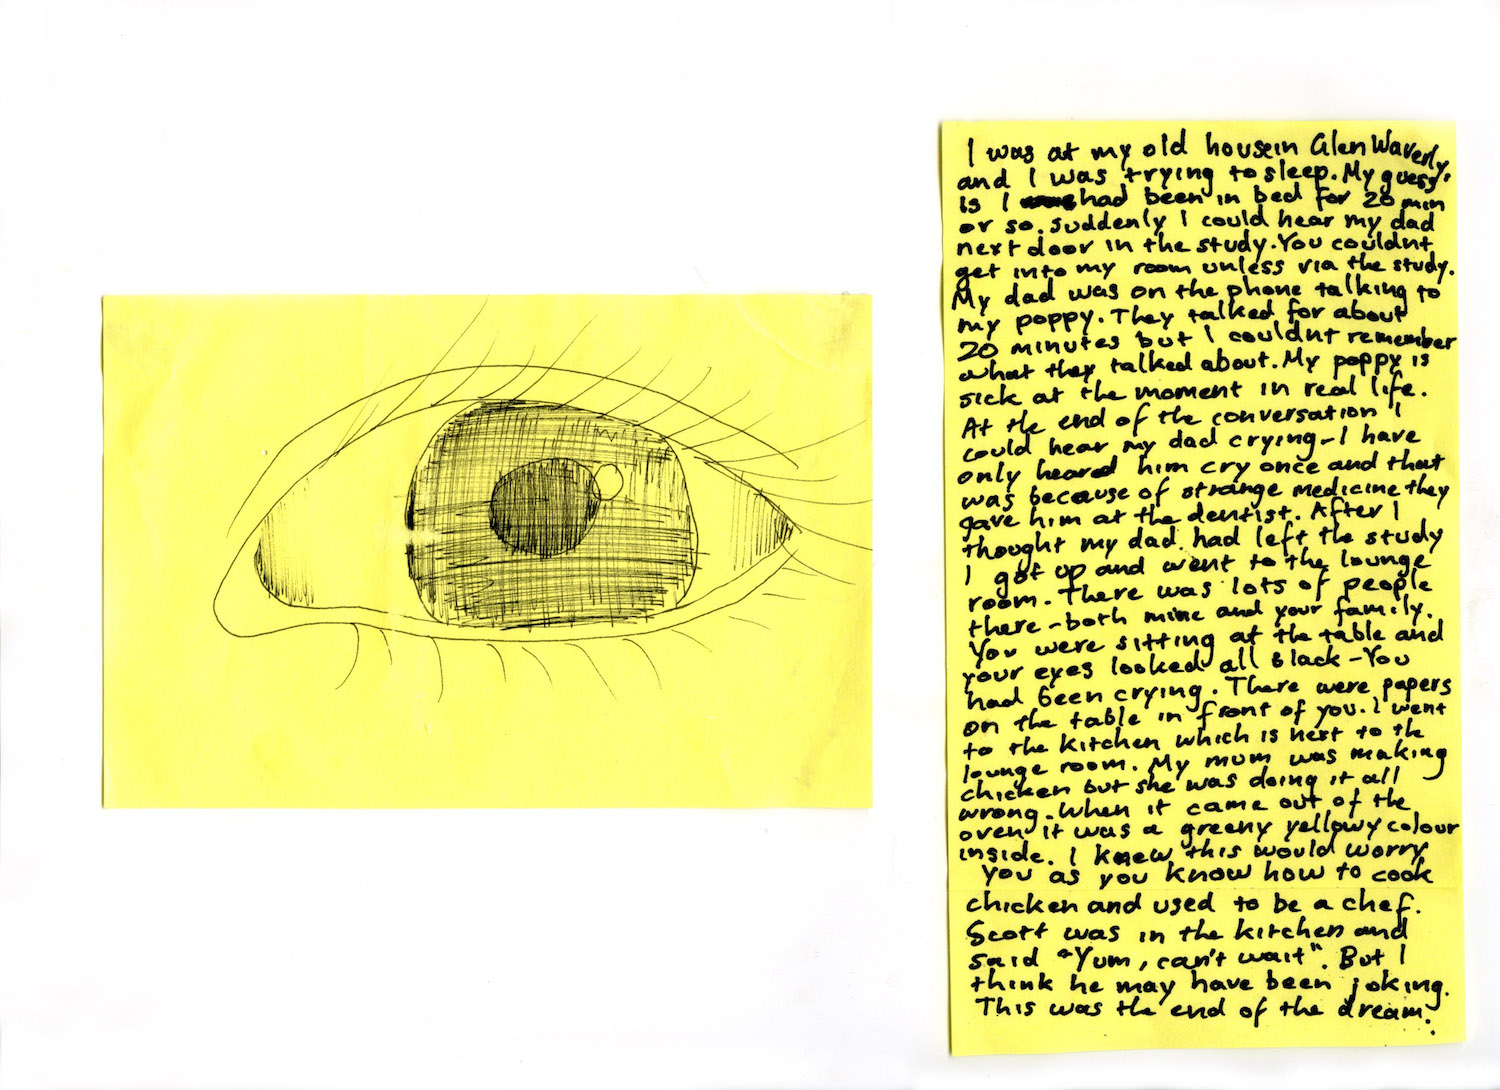 I was at my old housein Glen Waverly,
and I was trying to sleep. My guess
is I had been in bed for 20 min
or so. Suddenly I could hear my dad
next door in the study. You couldnt
get into my room unless via the study.
My dad was on the phone talking to
my poppy. They talked for about
20 minutes but I couldnt remember
what they talked about. My poppy is
sick at the moment in real life.
At the end of the conversation I
could hear my dad crying - I have
only heared him cry once and that
was because of strange medicine they
gave him at the dentist. After I
thought my dad had left the study
I got up and went to the lounge
room. There was lots of people
there - both mine and your family.
You were sitting at the table and
your eyes looked all black - You
had been crying. There were papers
on the table in front of you. I went
to the kitchen which is next to the
lounge room. My mum was making
chicken but she was doing it all
wrong. When it came out of the
oven it was a greeny yellowy colour
inside. I knew this would worry
you as you know how to cook
chicken and used to be a chef.
Scott was in the kitchen and
said "Yum, can't wait". But I
think he may have been joking.
This was the end of the dream.